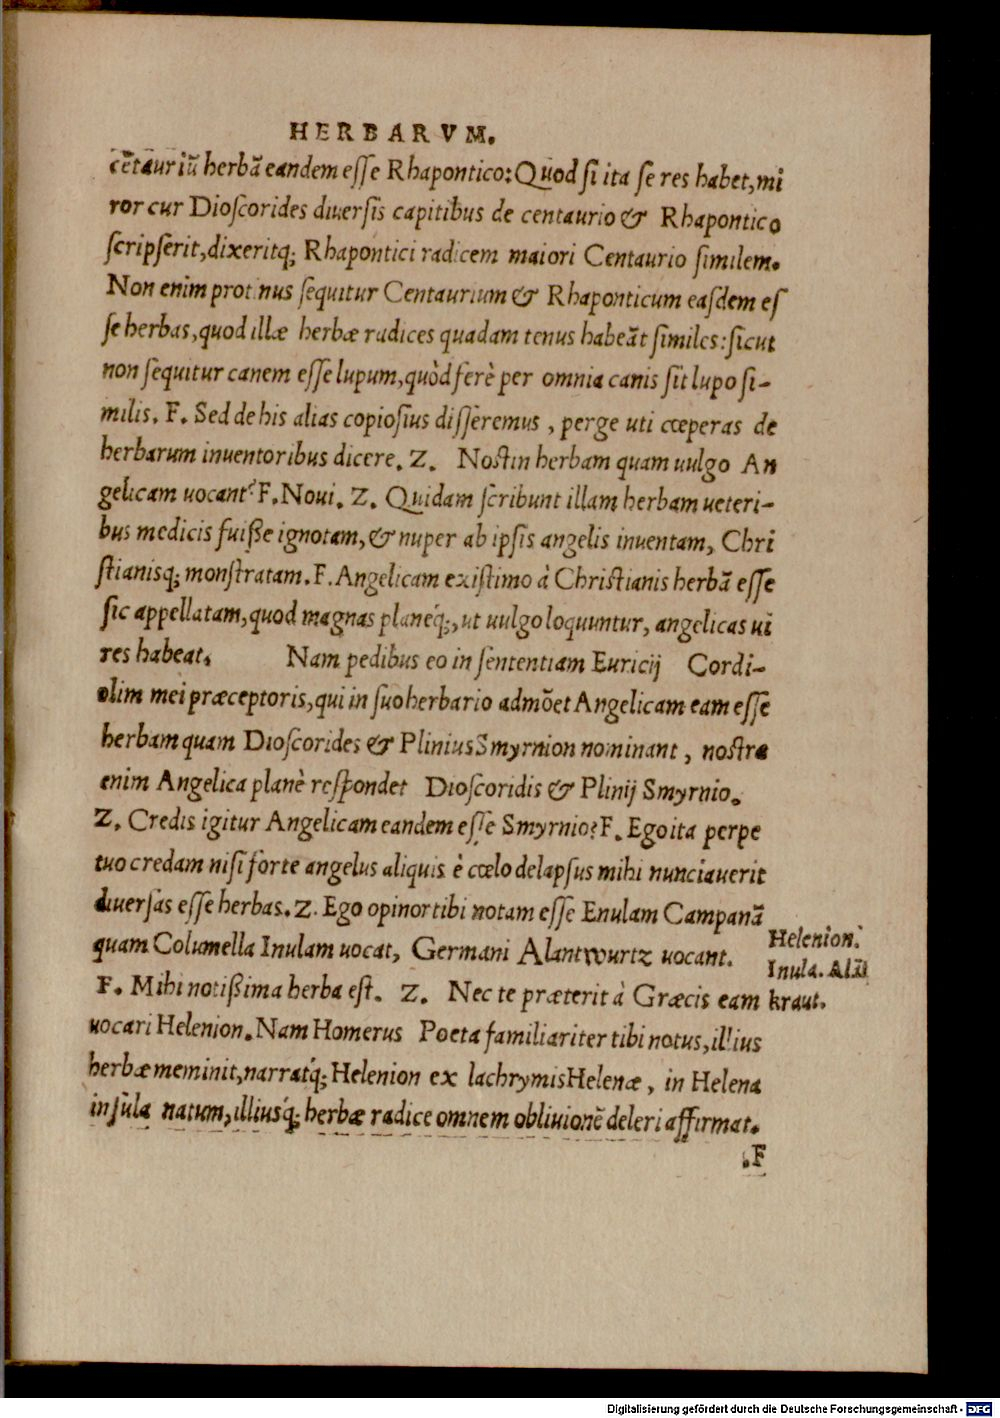 HERBARVM.
cẽtauriũ herbã eandem esse Rhapontico: Quod si ita se res habet, mi
ror cur Dioscorides diuersis capitibus de centaurio & Rhapontico
scripserit, dixeritq; Rhapontici radicem maiori Centaurio similem.
Non enim protinus sequitur Centaurium & Rhaponticum easdem es
se herbas, quod illæ herbæ radices quadam tenus habeãt similes: sicut
non sequitur canem esse lupum, quòd ferè per omnia canis sit lupo si-
milis. F. Sed de his alias copiosius disseremus, perge uti cœperas de
herbarum inuentoribus dicere. Z. Nostin herbam quam uulgo An
gelicam uocant? F. Noui. Z. Quidam scribunt illam herbam ueteri-
bus medicis fuiße ignotam, & nuper ab ipsis angelis inuentam, Chri
stianisq; monstratam. F. Angelicam existimo à Christianis herbã esse
sic appellatam, quod magnas planéq;, ut uulgo loquuntur, angelicas ui
res habeat. Nam pedibus eo in sententiam Euricij Cordi-
olim mei præceptoris, qui in suo herbario admõet Angelicam eam esse
herbam quam Dioscorides & Plinius Smyrnion nominant, nostra
enim Angelica planè respondet Dioscoridis & Plinij Smyrnio.
Z. Credis igitur Angelicam eandem esse Smyrnio? F. Ego ita perpe
tuo credam nisi forte angelus aliquis è cœlo delapsus mihi nunciauerit
diuersas esse herbas. Z. Ego opinor tibi notam esse Enulam Campanã
quam Columella Inulam uocat, Germani Alantwurtz uocant.
Helenion.
Inula. Alãt
kraut.
F. Mihi notißima herba est. Z. Nec te præterit à Græcis eam
uocari Helenion. Nam Homerus Poeta familiariter tibi notus, illius
herbæ meminit, narratq́; Helenion ex lachrymis Helenæ, in Helena
insula natum, illiusq́; herbæ radice omnem obliuionẽ deleri affirmat.
.F
Digitalisierung gefördert durch die Deutsche Forschungsgemeinschaft - DFG